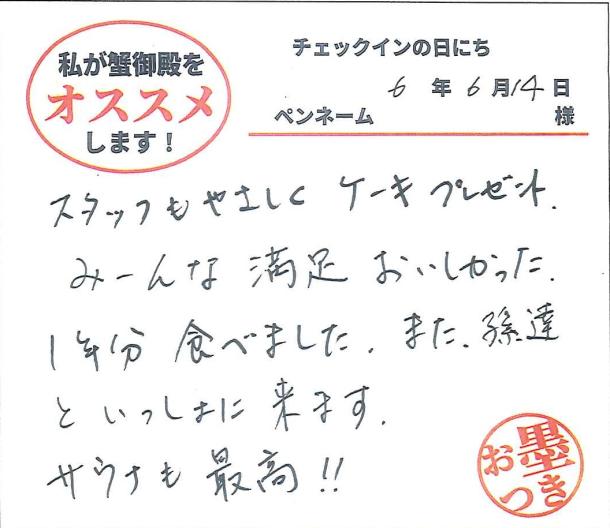 私が蟹御殿を
オススメ
します！
チェックインの日にち
6年6月14日
ペンネーム 様
スタッフもやさしく ケーキプレゼント.
みーんな 満足 おいしかった.
1年分 食べました. また、孫達
といっしょに 来ます.
サウナも 最高!!
お墨
つき